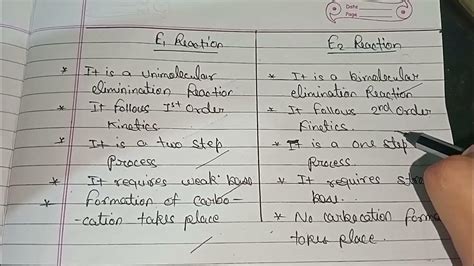 Date
Page
E1 Reaction
* It is a unimolecular
eliminination Reaction
* It follows Ist order
Kinetics
* It is a two step
Process
* It requires weak base
* Formation of carbo-
-cation takes place
E2 Reaction
* It is a bimolecular
elimination Reaction
* It follows 2nd order
Kinetics.
* It is a one step
Process.
* It requires
base.
* No carbocation
takes place.